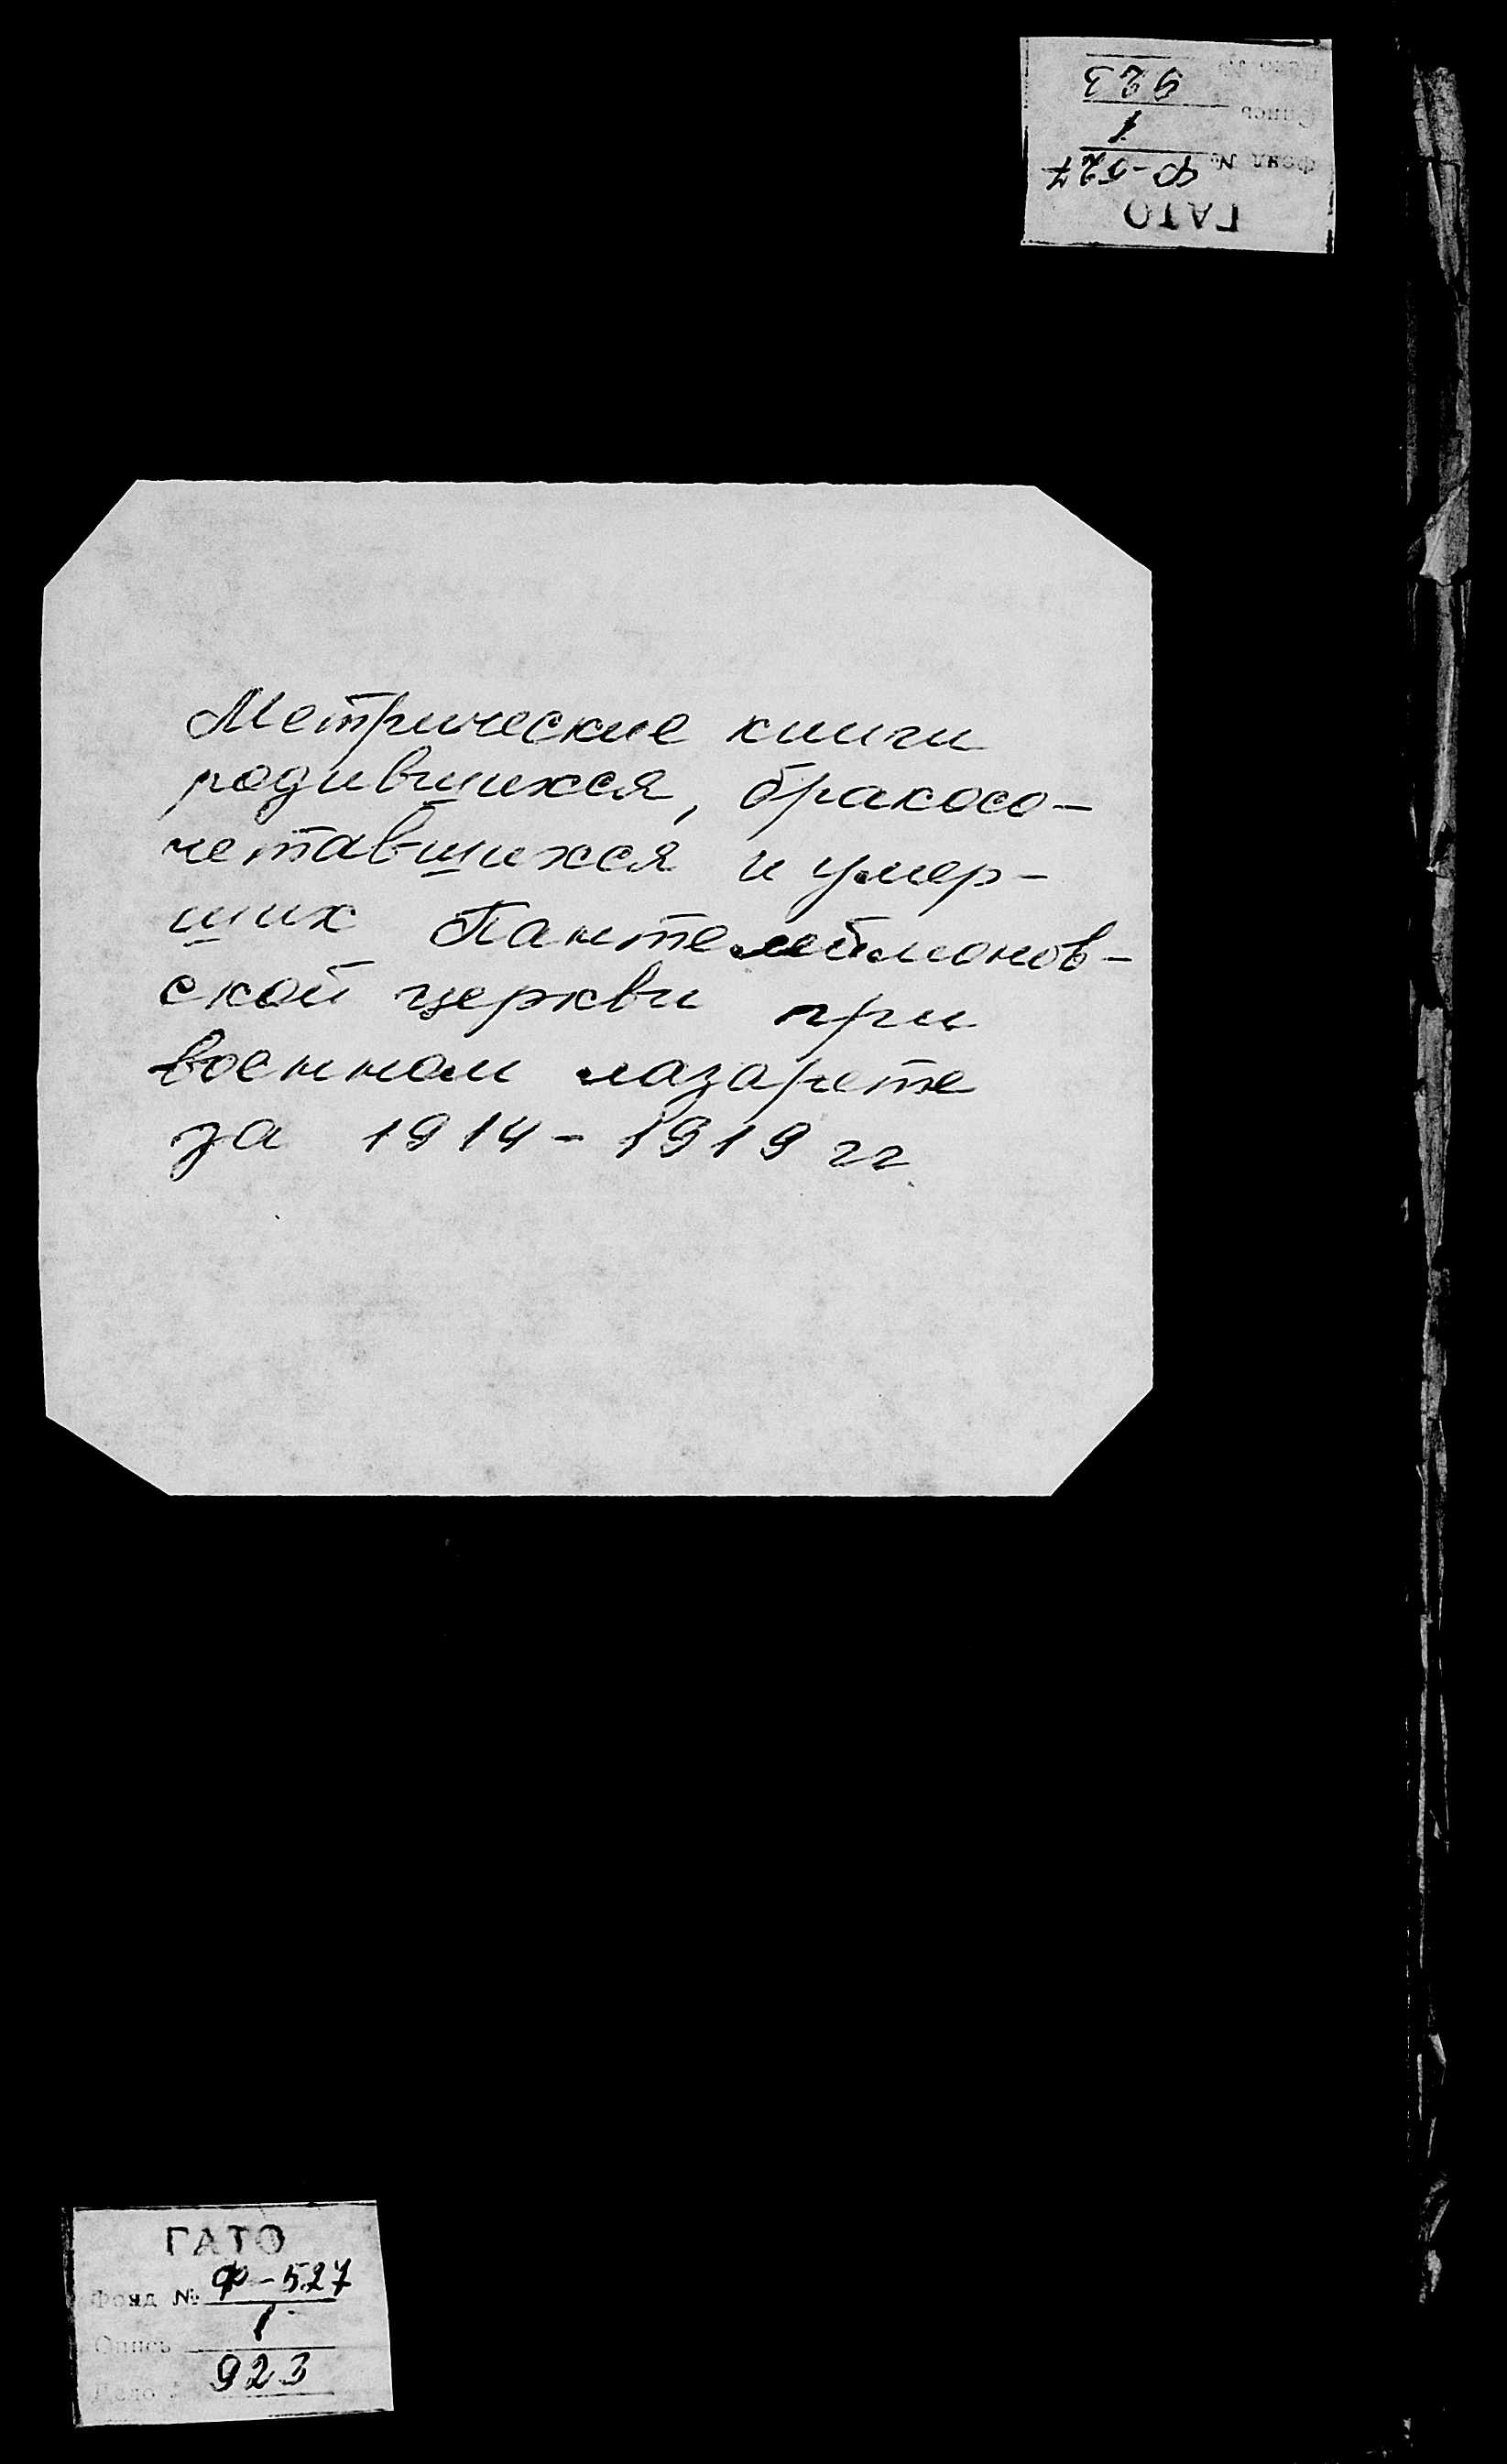 ГАТО
Фонд № Ф-527
Опись 1
Дело 923
Метрические книги
родившихся, бракосо-
четавшихся и умер-
ших Пантелеймонов-
ской церкви при
военном лазарете
за 1914-1919 гг.
ГАТО
Фонд № Ф-527
Опись 1
Дело 923